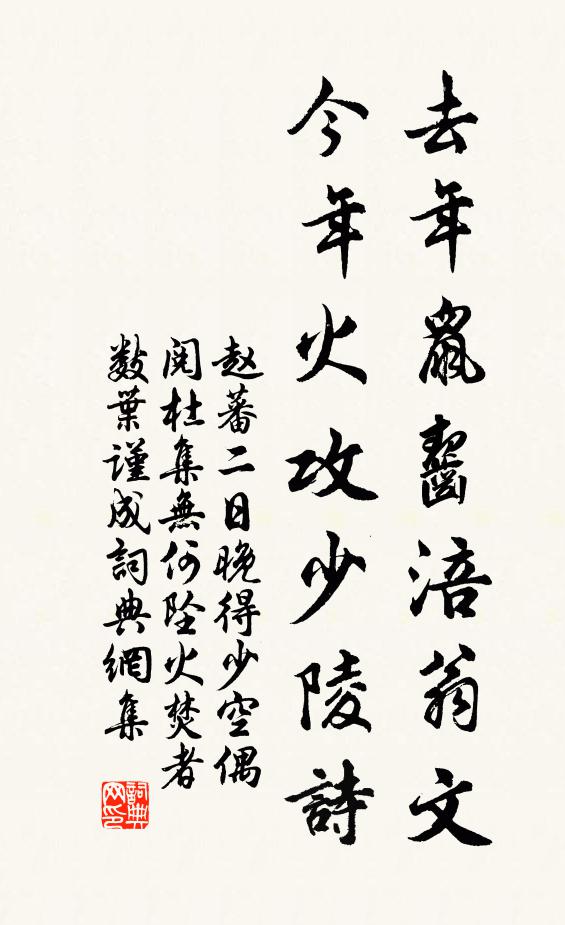 去年鼠齧涪翁文
今年火攻少陵詩
赵蕃二日晚得少空偶
阅杜集無何坠火焚者
数葉謹成詞典網集
詞典网印